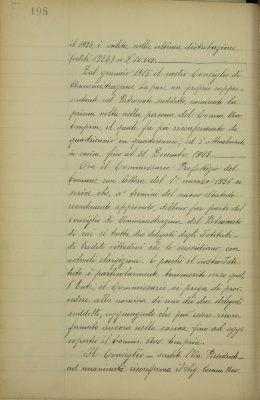 198
il 1921, è solita nella ultima distribuzione
(utili 1924) a £ 10.000.
Dal gennaio 1915 il nostro Consiglio di
Amministrazione ha pure un proprio rappre-
sentante nel Patronato suddetto, nominato la
prima volta nella persona del Comm. Avv.
il quale fu poi riconfermato di
quadriennio in quadriennio, ed è attualmente
in carica fino al 31 Dicembre 1928.
Ora il Commissario Prefettizio del
Comune, con lettera del 5 marzo 1926
scrive che, a termini del nuovo statuto
recentemente approvato, debbono far parte del
Consiglio di Amministrazione del Patronato
di cui si tratta due delegati degli Istituti
di Credito cittadini che lo sostengono con
notevoli elargizioni. E poichè il nostro Isti-
tuto è particolarmente benemerito verso quel-
l'Ente, il Commissario ci prega di prov-
vedere alla nomina di uno dei due delegati
suddetti, aggiungendo che può essere ricon-
fermato ancora nella carica fino ad oggi
coperta il Comm. Avv.
Il Consiglio - sentito l'On. Presidente -
ad unanimità riconferma il Sig. Comm. Avv.